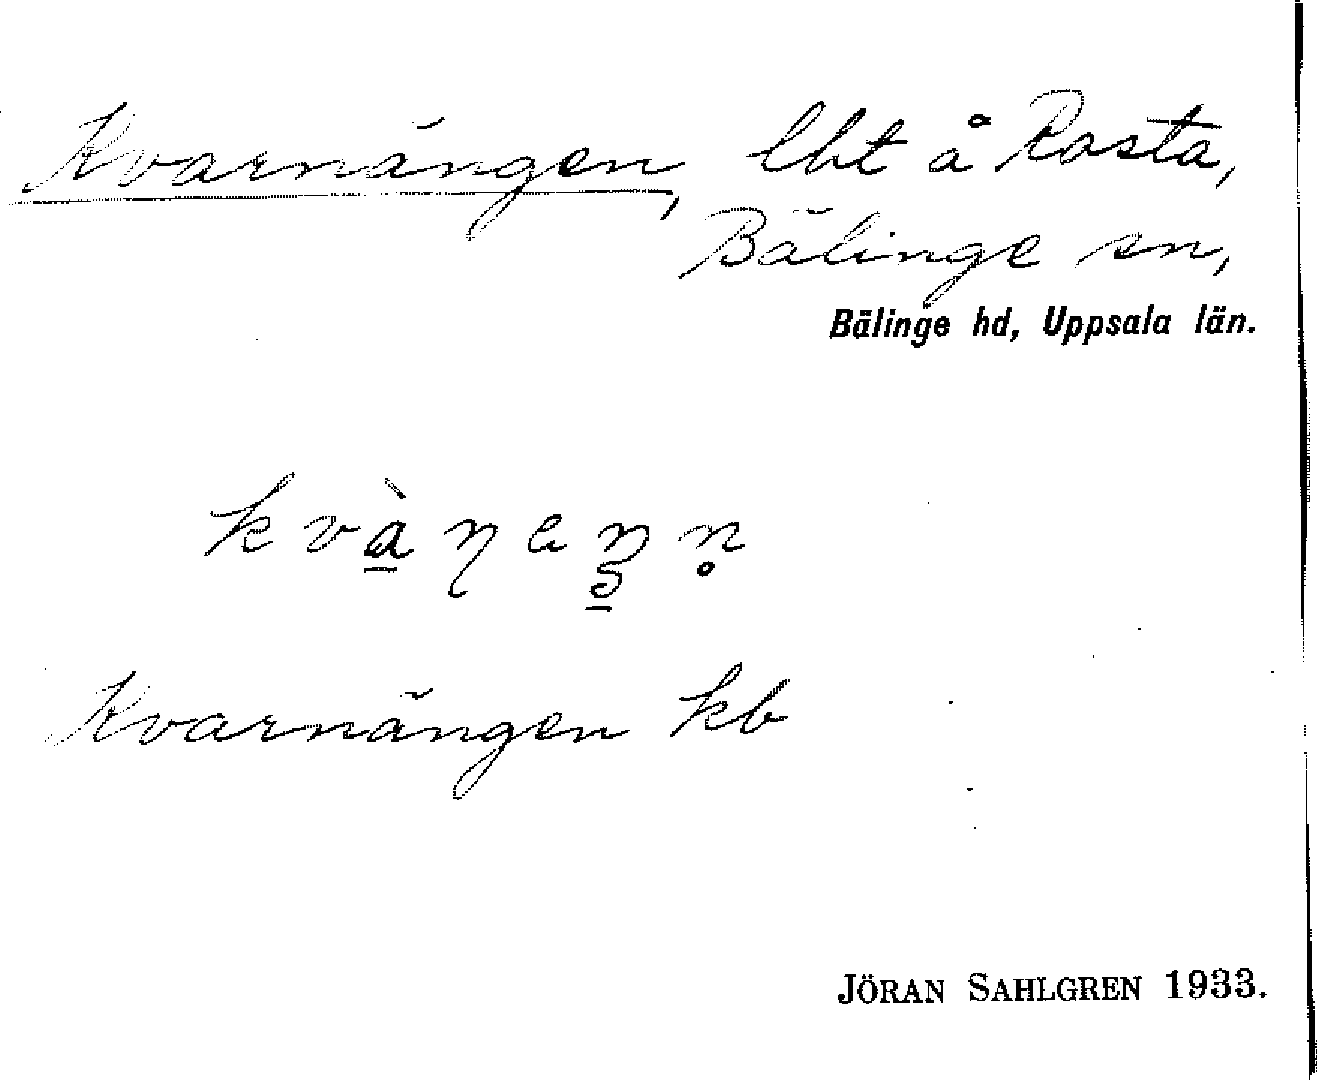 Kvarnängen, lht å Rosta,
Bälinge sn,
Bälinge hd, Uppsala län.
Kvarnängen kb
JÖRAN SAHLGREN 1933.